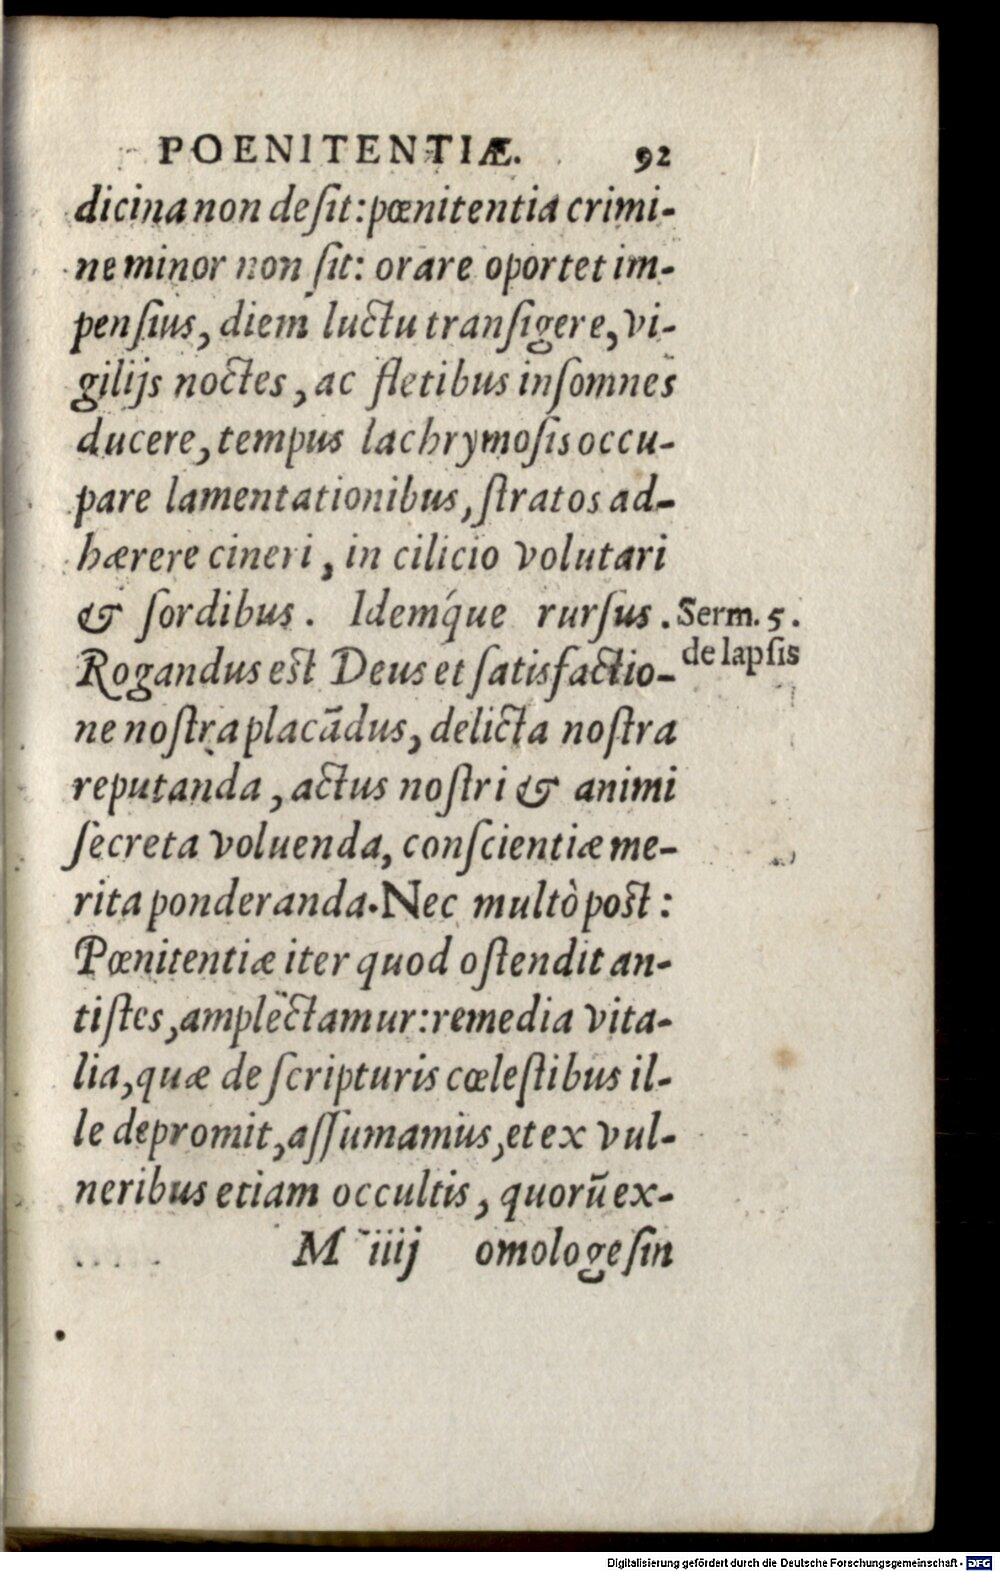 POENITENTIÆ. 92
dicina non desit: pœnitentia crimi-
ne minor non sit: orare oportet im-
pensius, diem luctu transigere, vi-
gilijs noctes, ac fletibus insomnes
ducere, tempus lachrymosis occu-
pare lamentationibus, stratos ad-
hærere cineri, in cilicio volutari
& sordibus. Idemq́ue rursus.
Serm. 5.
de lapsis
Rogandus est Deus et satisfactio-
ne nostra placādus, delicta nostra
reputanda, actus nostri & animi
secreta voluenda, conscientiæ me-
rita ponderanda. Nec multò post:
Pœnitentiæ iter quod ostendit an-
tistes, amplectamur: remedia vita-
lia, quæ de scripturis cœlestibus il-
le depromit, assumamus, et ex vul-
neribus etiam occultis, quorū ex-
M iiij omologesin
Digitalisierung gefördert durch die Deutsche Forschungsgemeinschaft - DFG